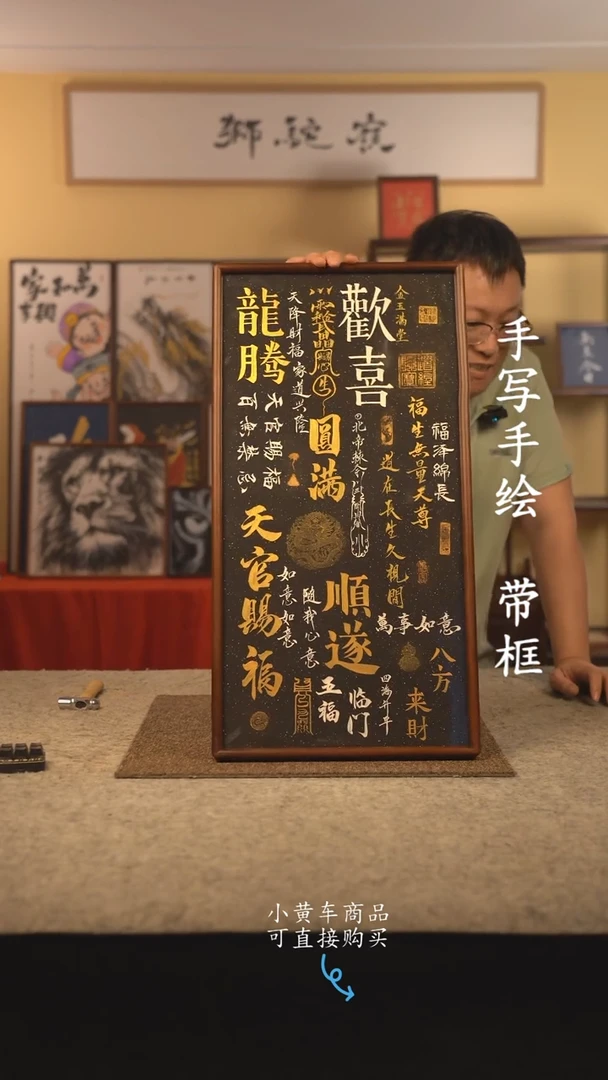 獅駝窟
家和萬
事興
龍騰
天降財福家道兴隆
歡喜
金玉滿堂
天官賜福
百無禁忌
圓滿
福生無量天尊
道在長生久視間
福泽綿長
天官賜福
如意如意
隨我心意
順遂
萬事如意
五福
临门
四海升平
八方
来財
手写手绘 带框
小黄车商品
可直接购买